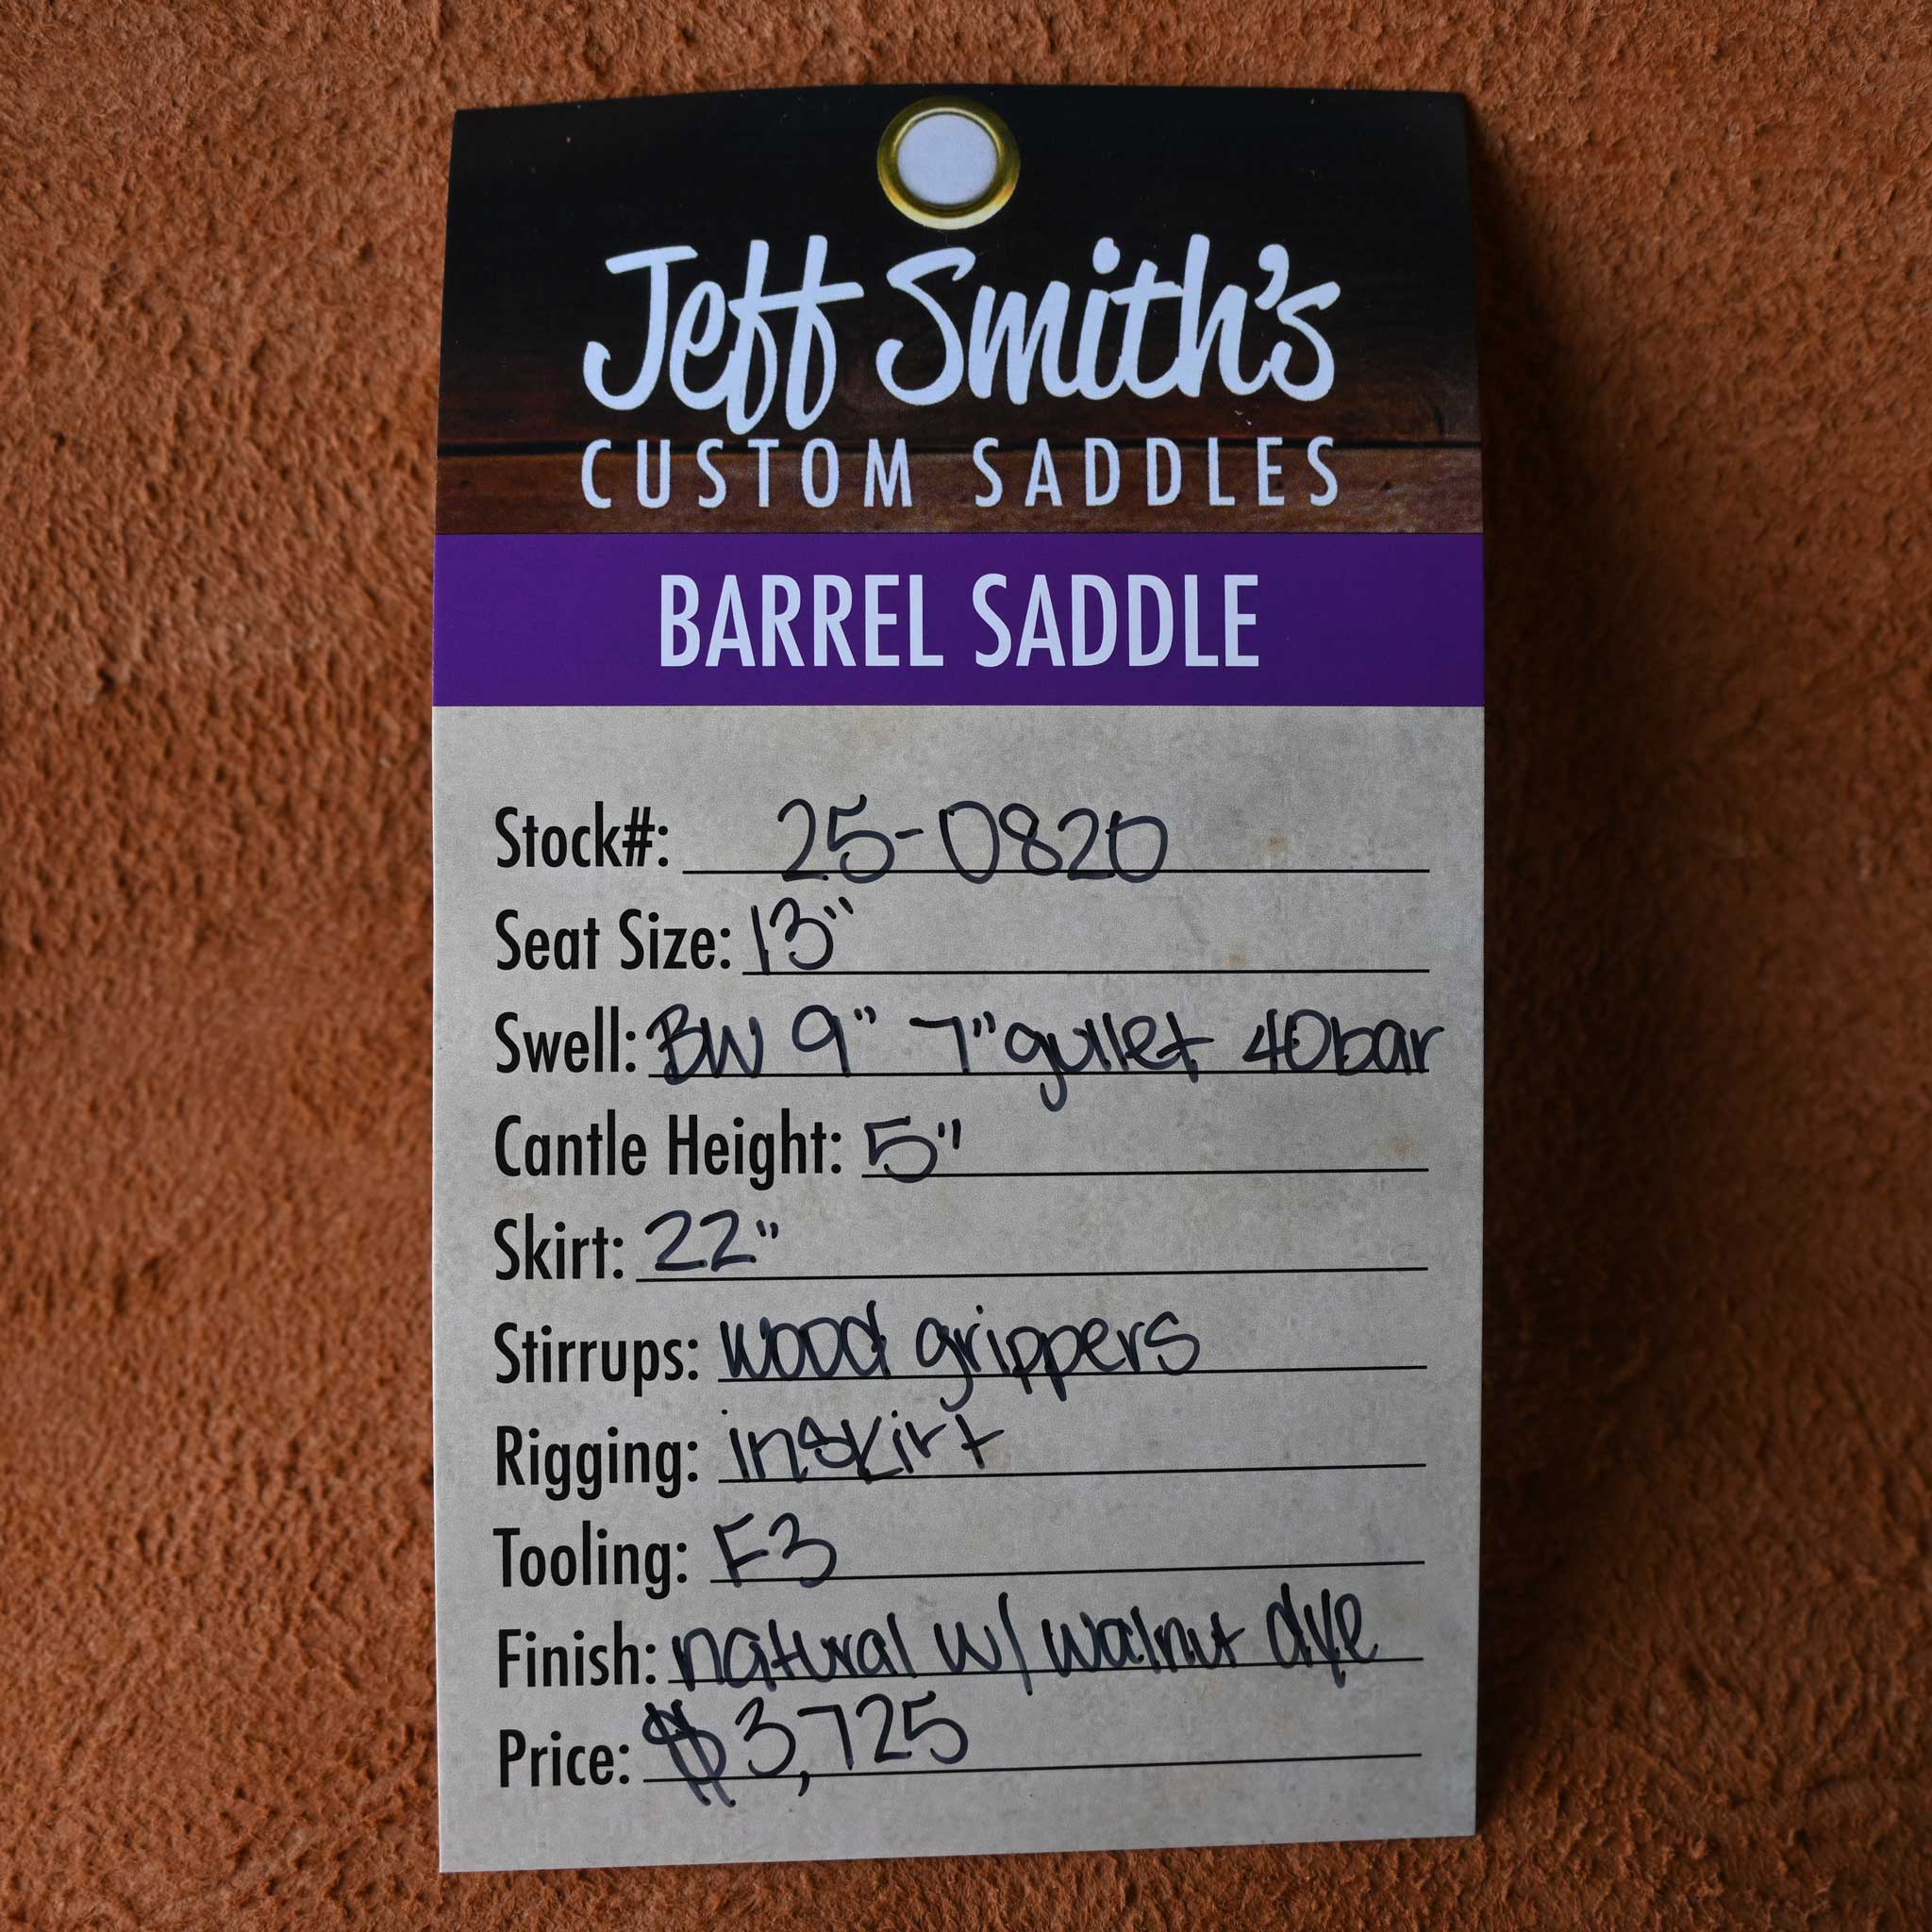 Jeff Smith's
CUSTOM SADDLES
BARREL SADDLE
Stock#: 25-0820
Seat Size: 13"
Swell: BW 9" 7" gullet 40bar
Cantle Height: 5"
Skirt: 22"
Stirrups: wood grippers
Rigging: inskirt
Tooling: F3
Finish: natural w/ walnut dye
Price: $3,725